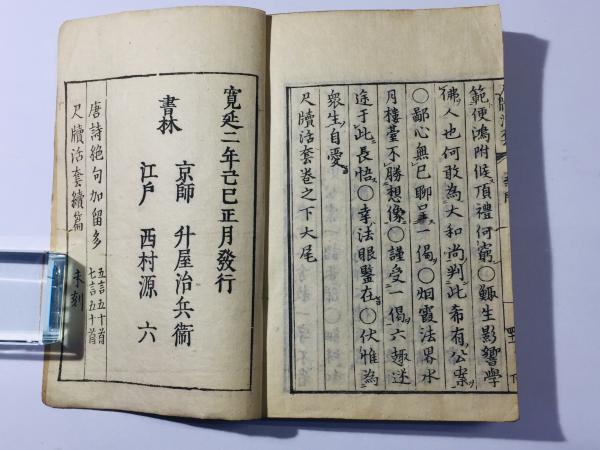 範便鴻附候頂禮何窮○甄生影響學
佛人也何敢為大和尚判此希有公案
○鄙心無已聊呈一偈○烟霞法界水
月樓臺不勝想像○謹受一偈六趣迷
途于此長悟○幸法眼鑒在○伏惟為
衆生自愛
尺牘活套卷之下大尾
寛延二年己巳正月發行
書林
京師 升屋治兵衞
江戸 西村源六
唐詩絶句加留多 五言五十首 七言五十首
尺牘活套續篇 未刻